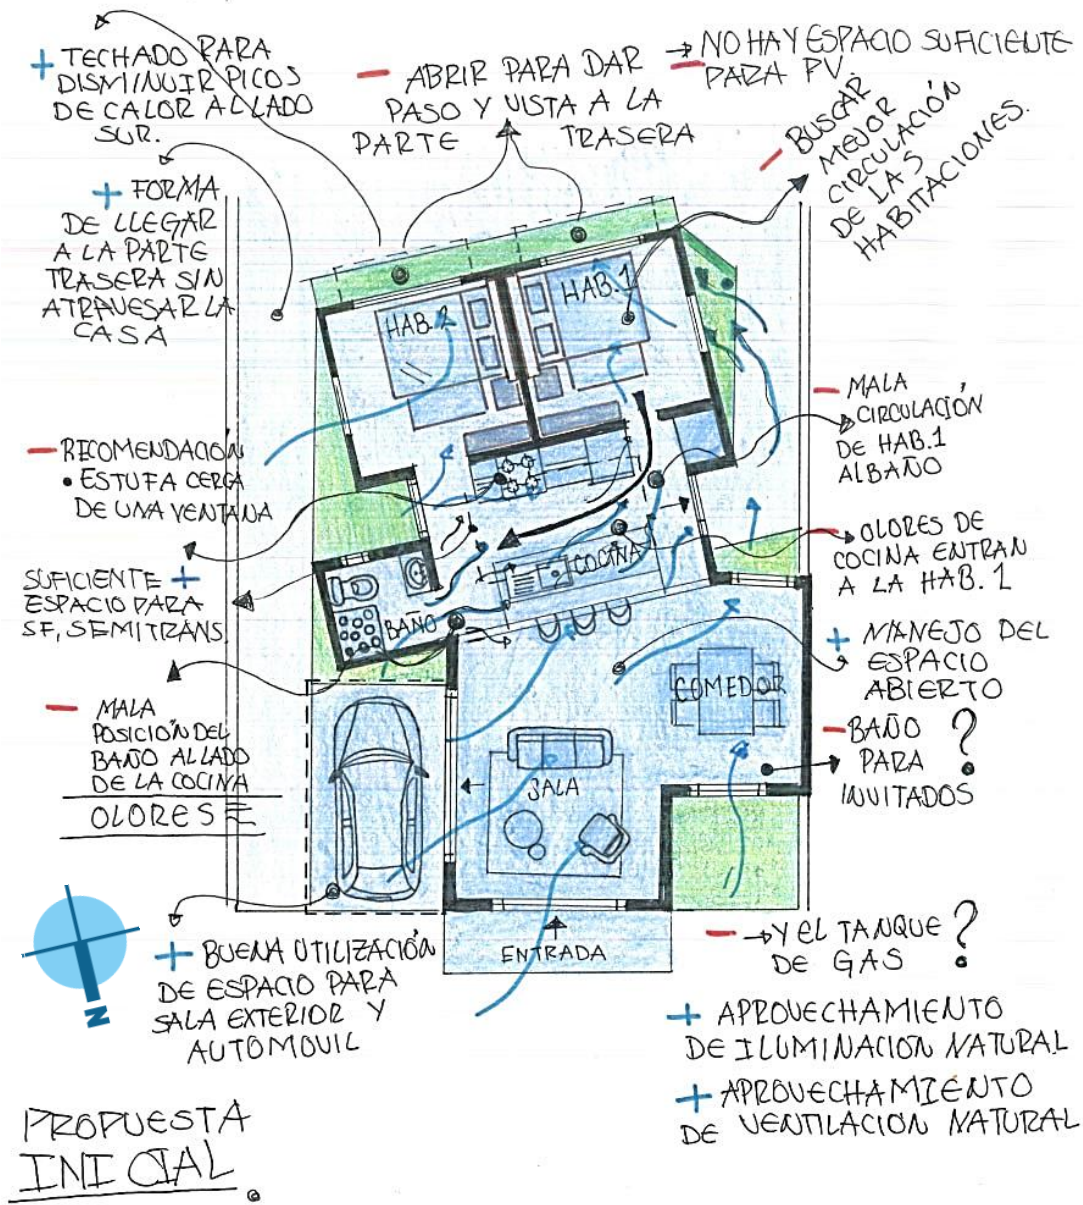 + TECHADO PARA
DISMINUIR PICOS
DE CALOR AL LADO
SUR.
- ABRIR PARA DAR
PASO Y VISTA A LA
PARTE TRASERA
→ NO HAY ESPACIO SUFICIENTE
- PARA PV
- BUSCAR
MEJOR
CIRCULACIÓN
DE LAS
HABITACIONES.
+ FORMA
DE LLEGAR
A LA PARTE
TRASERA SIN
ATRAVESAR LA
CASA
HAB. 2
HAB. 1
- MALA
CIRCULACIÓN
DE HAB. 1
AL BAÑO
- RECOMENDACIÓN
• ESTUFA CERCA
DE UNA VENTANA
- OLORES DE
COCINA ENTRAN
A LA HAB. 1
COCINA
SUFICIENTE +
ESPACIO PARA
SF, SEMITRANS.
BAÑO
+ MANEJO DEL
ESPACIO
ABIERTO
COMEDOR
- MALA
POSICIÓN DEL
BAÑO AL LADO
DE LA COCINA
OLORES
- BAÑO ?
PARA
INVITADOS
SALA
ENTRADA
- → Y EL TANQUE ?
DE GAS
N
+ BUENA UTILIZACIÓN
DE ESPACIO PARA
SALA EXTERIOR Y
AUTOMOVIL
+ APROVECHAMIENTO
DE ILUMINACION NATURAL
+ APROVECHAMIENTO
DE VENTILACION NATURAL
PROPUESTA
INICIAL.